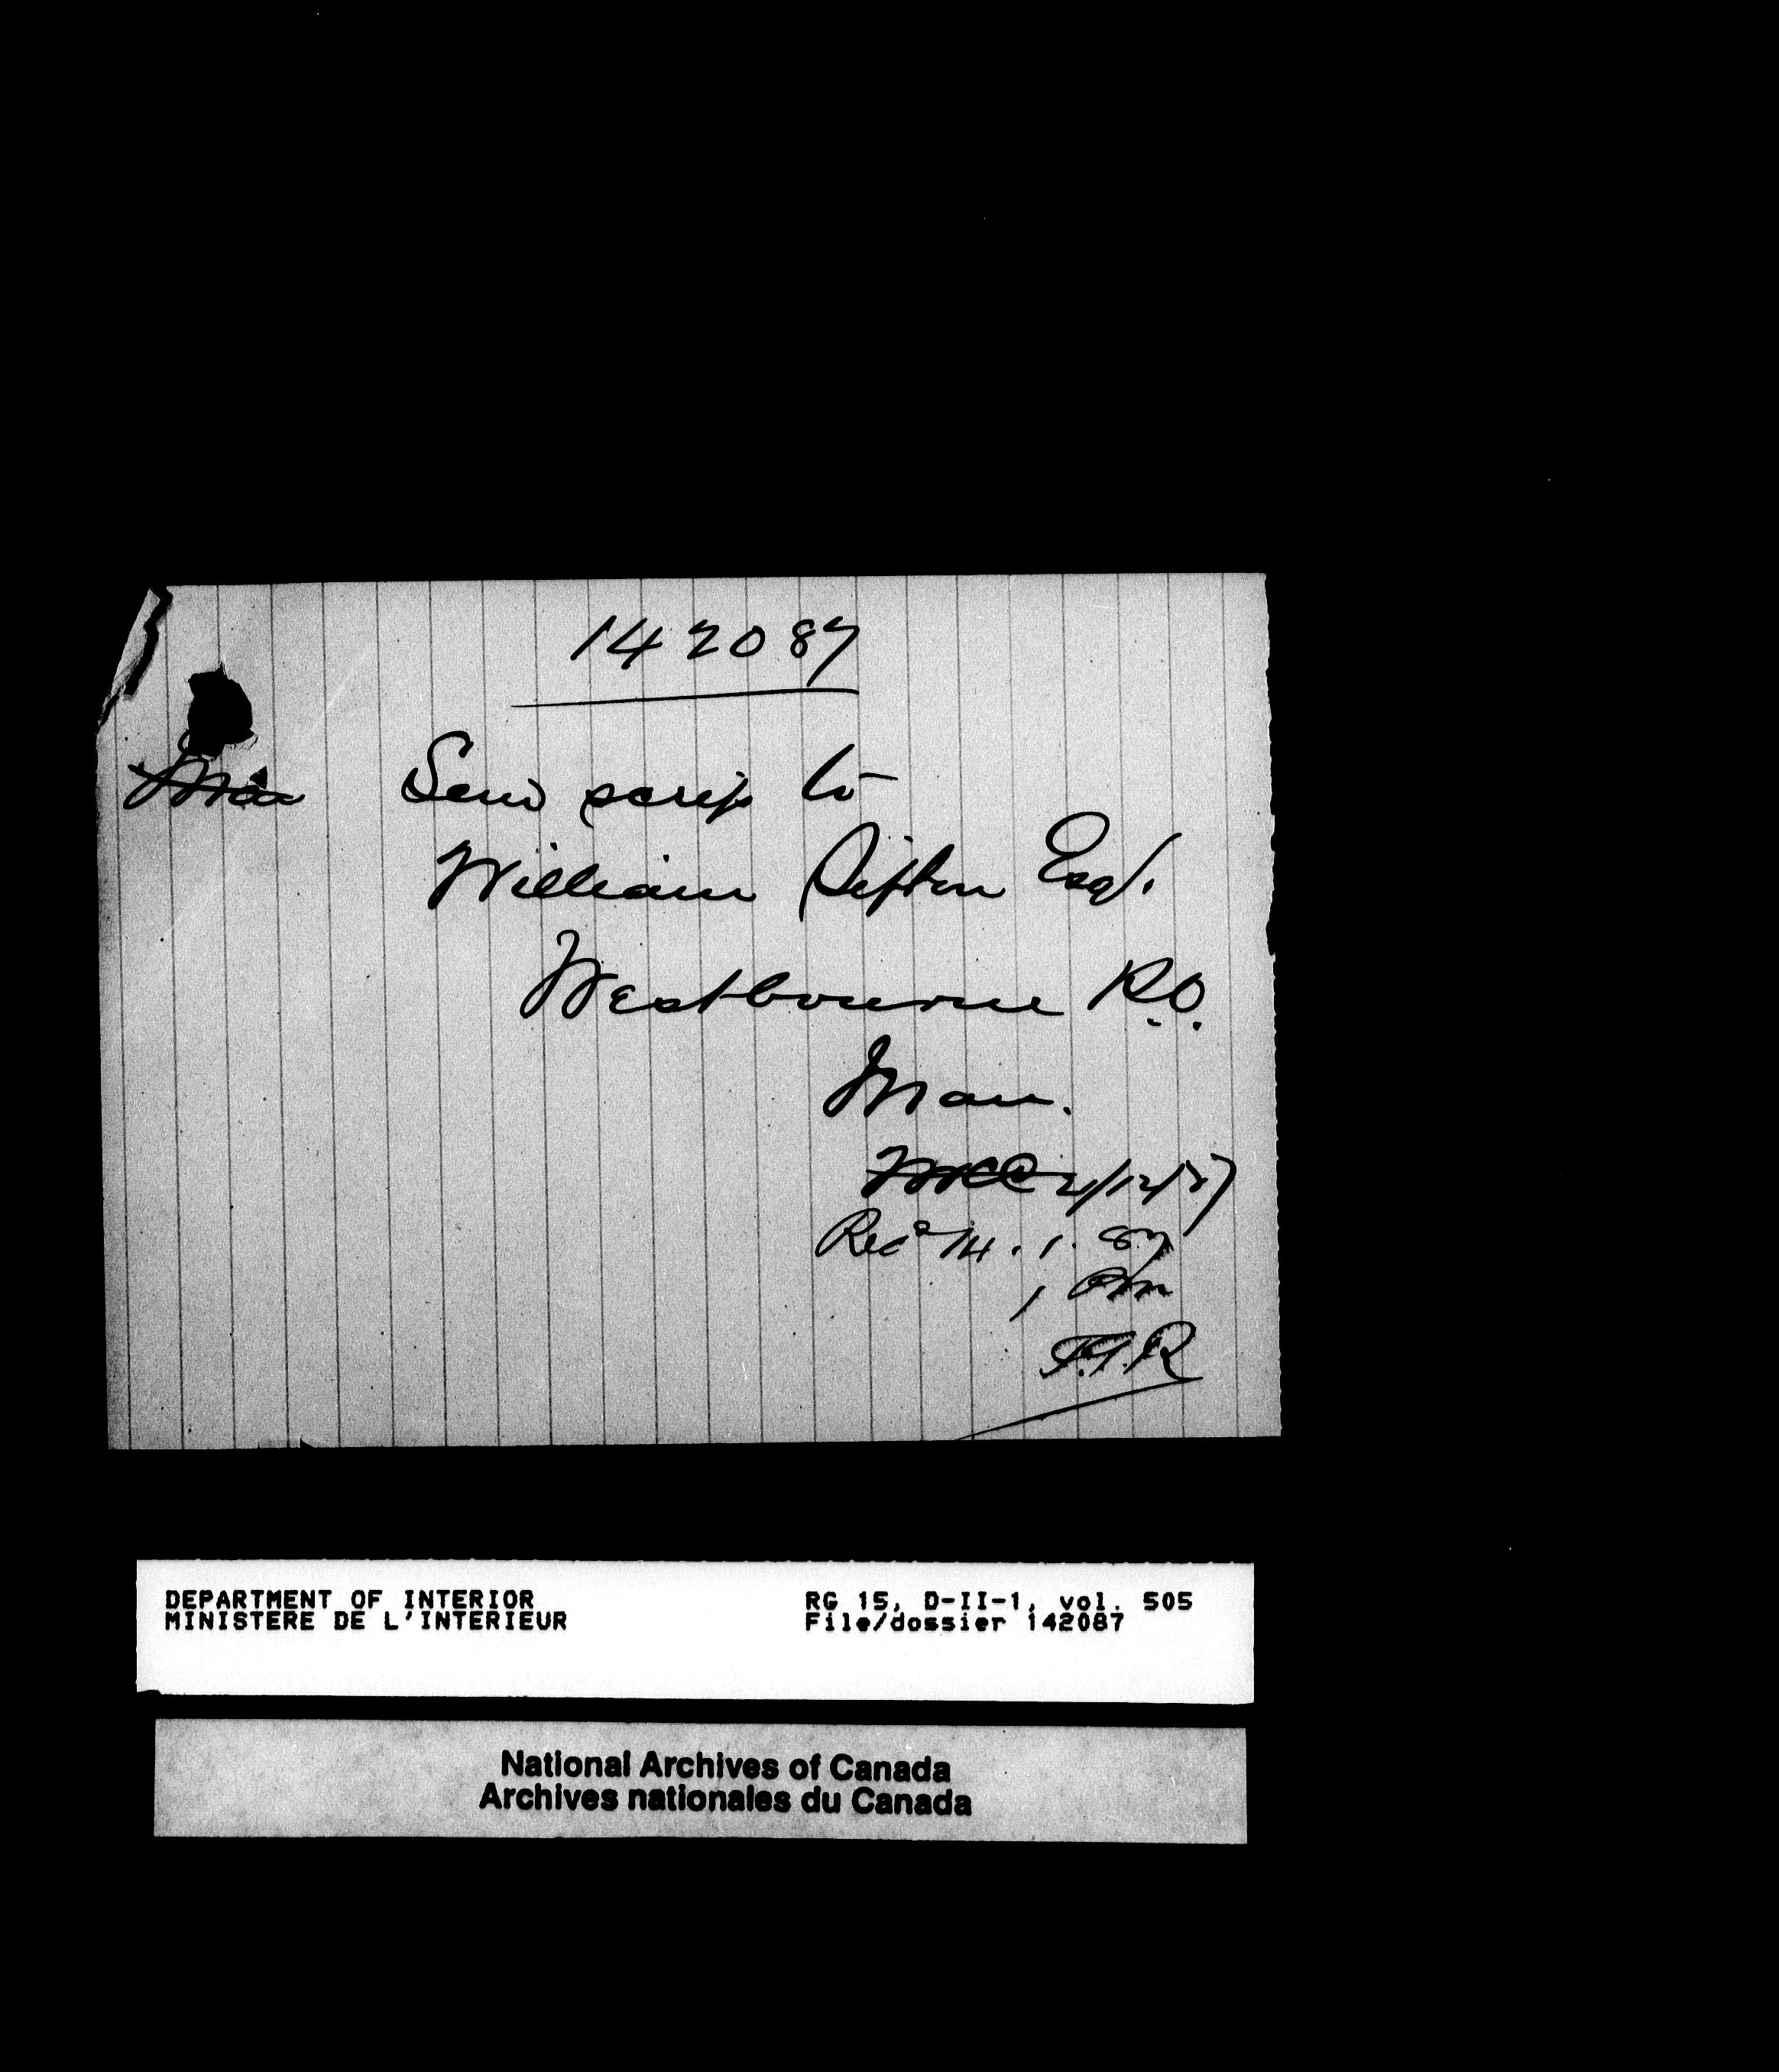 142087
Send scrip to
William Sifton Esq.
Westbourne P.O.
Man.
Recd 14. 1. 87
1 Pm
F.F.R
DEPARTMENT OF INTERIOR
MINISTERE DE L'INTERIEUR
RG 15, D-II-1, vol. 505
File/dossier 142087
National Archives of Canada
Archives nationales du Canada